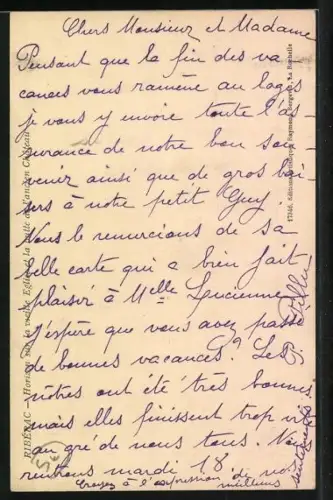 Chers Monsieur et Madame
Pensant que la fin des va-
cances vous ramène au logis
je vous y envoie toute l'as-
surance de notre bon sou-
venir ainsi que de gros bai-
sers à notre petit Guy.
Nous le remercions de sa
belle carte qui a bien fait
plaisir à Melle Lucienne
J'espère que vous avez passé
de bonnes vacances? Les
nôtres ont été très bonnes
mais elles finissent trop vite
au gré de nous tous. Nous
rentrons mardi 18
Croyez à l'expression de nos
meilleurs
sentiments
RIBÉRAC - Horizon sur la vieille Église et la Butte de l'ancien Château
La Rochelle